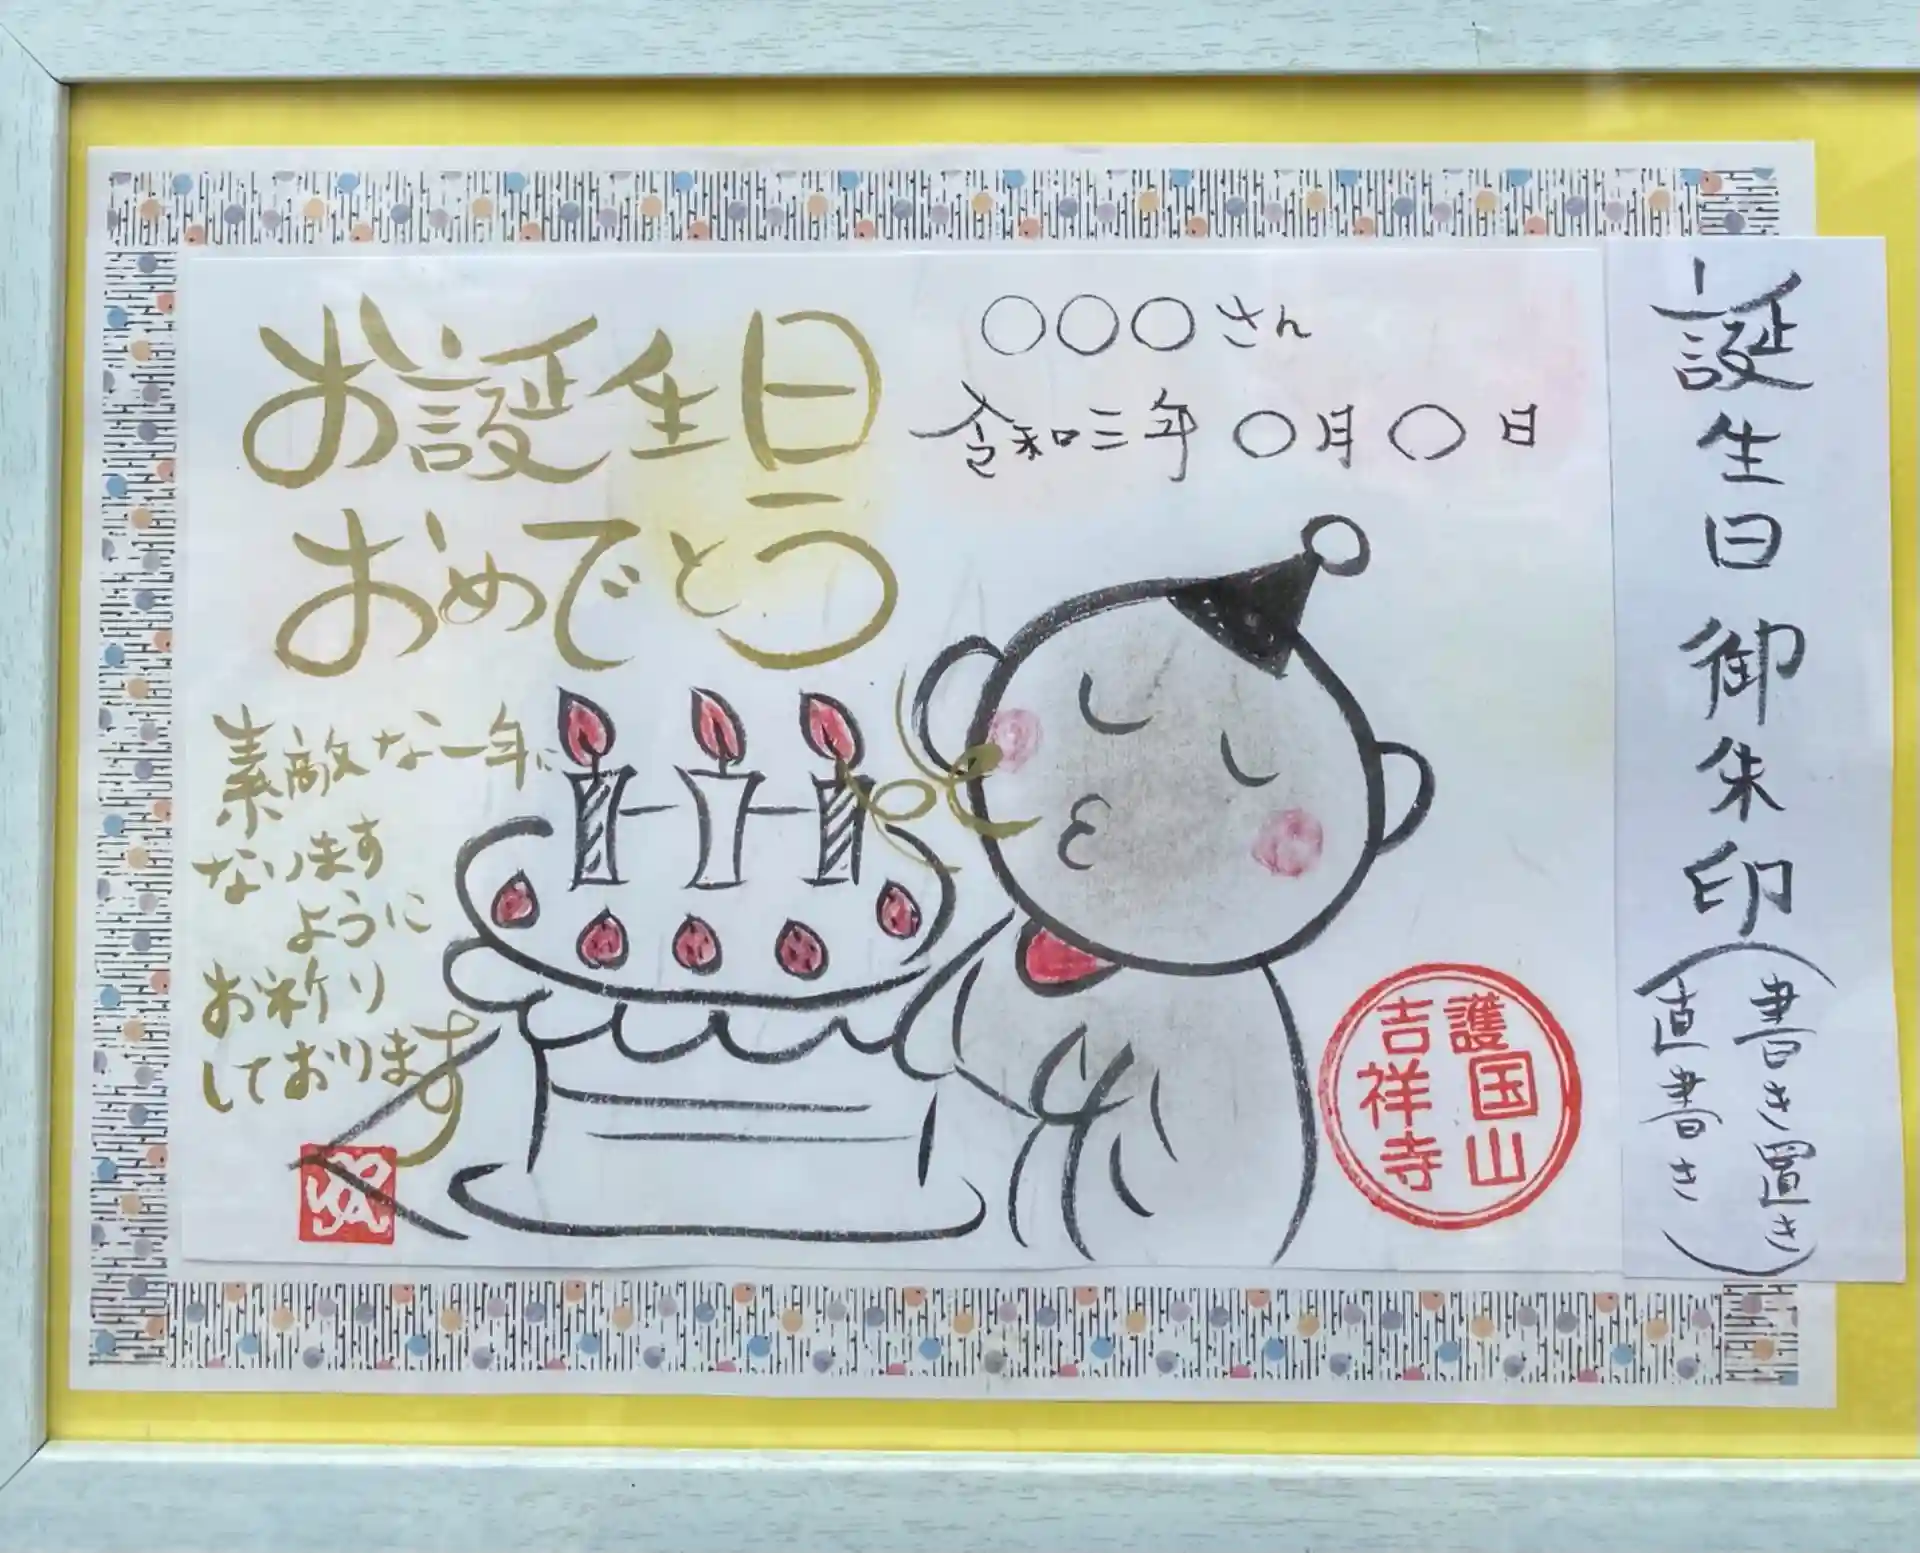 お誕生日
おめでとう
〇〇〇さん
令和三年〇月〇日
素敵な一年に
なります
ように
お祈り
しております
護国山
吉祥寺
誕生日御朱印
(書き置き
直書き)